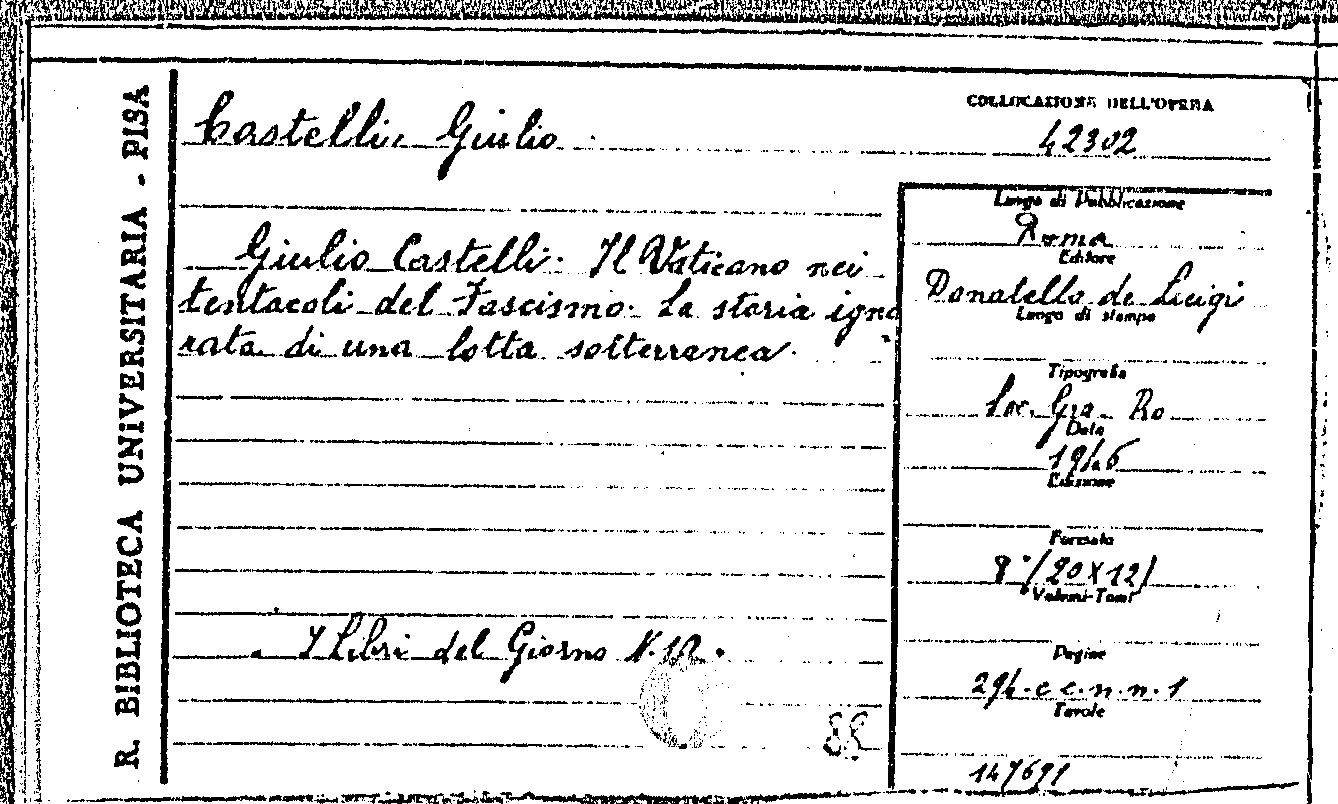 R. BIBLIOTECA UNIVERSITARIA - PISA
Castelli, Giulio.
COLLOCAZIONE DELL'OPERA
42302
Giulio Castelli. Il Vaticano nei
tentacoli del Fascismo. La storia igno
rata di una lotta sotterranea.
I libri del Giorno N. 10.
88
Luogo di Pubblicazione
Roma
Editore
Donatello de Luigi
Luogo di stampa
Tipografia
Soc. Gra. Ro
Data
1946
Edizione
Formato
8°/20X12/
Volumi-Tomi
Pagine
294. c c. n. n. 1
Tavole
147691